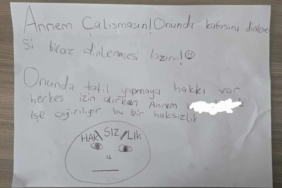 Annem Calismasın! Onunda kafasını dinleme
si biraz dinlenmesi lazım!
Onunda tatil yapmaya hakkı var
herkes izin alırken Annem
işe çağırılıyor bu bir haksızlık
HAK SIZ LIK